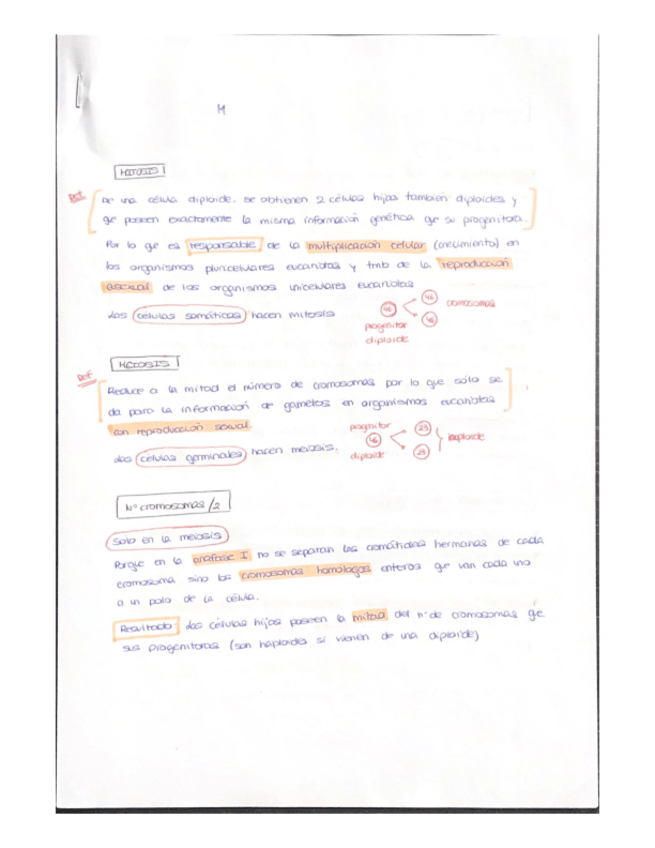 M
MITOSIS
Def.
De una célula diploide, se obtienen 2 células hijas también diploides y
qe poseen exactamente la misma información genética qe su progenitora.
Por lo qe es responsable de la multiplicación celular (crecimiento) en
los organismos pluricelulares eucariotas y tmb de la reproducción
asexual de los organismos unicelulares eucariotas
Las células somáticas hacen mitosis
46
46
46
cromosomas
progenitor
diploide
MEIOSIS
Def
Reduce a la mitad el número de cromosomas por lo que sólo se
da para la información de gametos en organismos eucariotas
con reproducción sexual.
Las células germinales hacen meiosis.
progenitor
46
diploide
23
23
haploide
Nº cromosomas /2
Solo en la meiosis
Porqe en la anafase I no se separan las cromátidas hermanas de cada
cromosoma sino los cromosomas homólogos enteros qe van cada uno
a un polo de la célula.
Resultado: Las células hijas poseen la mitad del nº de cromosomas qe
sus progenitoras (son haploides si vienen de una diploide)